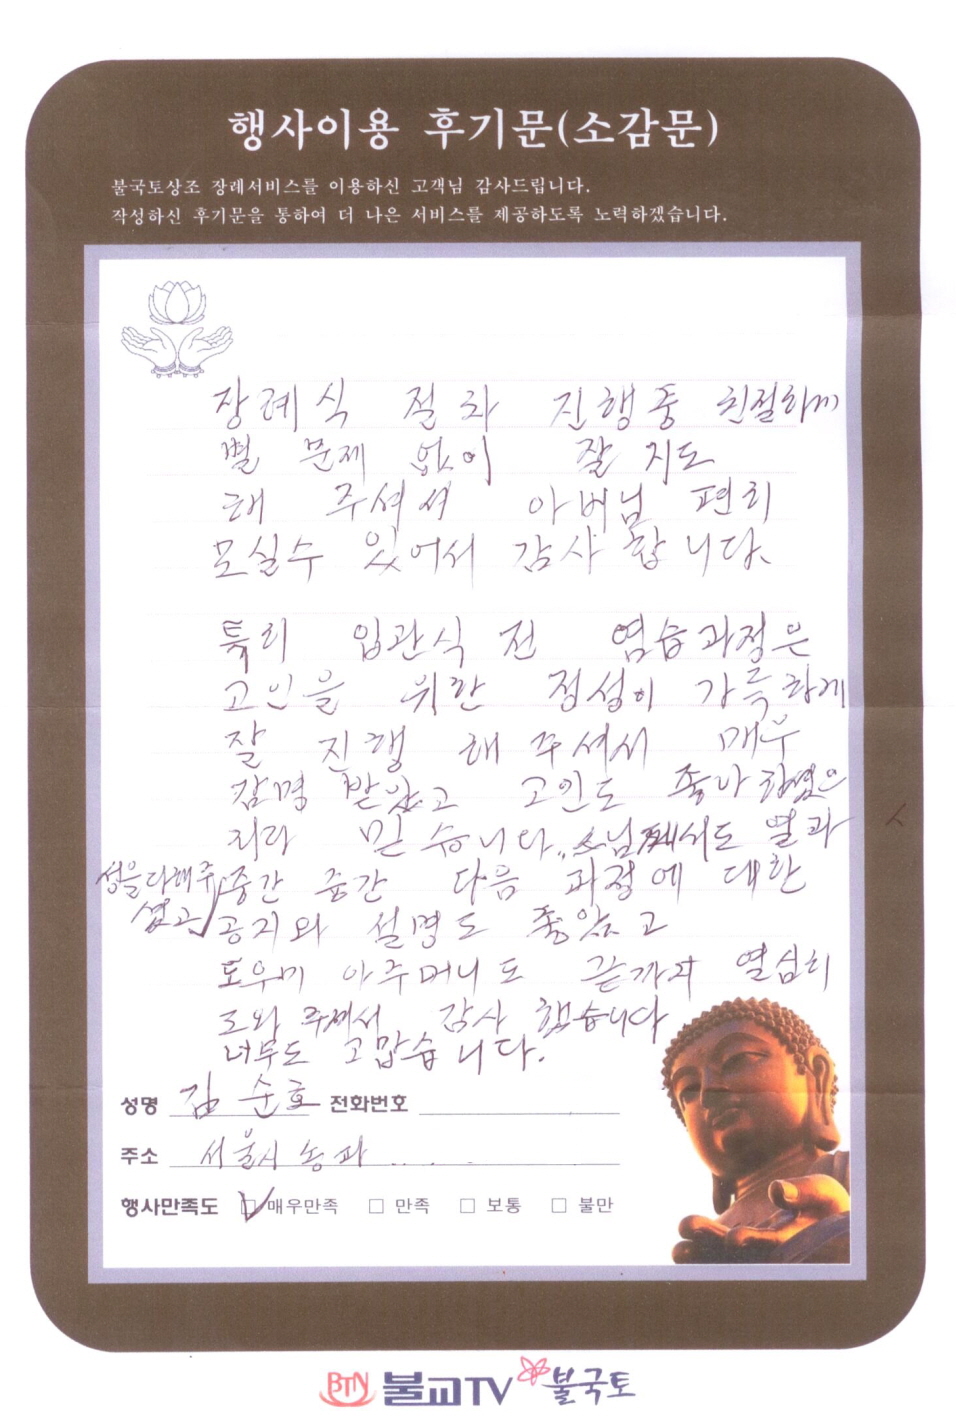 행사이용 후기문(소감문)
불국토상조 장례서비스를 이용하신 고객님 감사드립니다.
작성하신 후기문을 통하여 더 나은 서비스를 제공하도록 노력하겠습니다.
장례식 절차 진행중 친절하게
별 문제 없이 잘 지도
해 주셔서 아버님 편히
모실수 있어서 감사 합니다.
특히 입관식 전 염습과정은
고인을 위한 정성이 가득하게
잘 진행 해 주셔서 매우
감명 받았고 고인도 좋아하였으
리라 믿습니다. 스님께서도 열과
성을다해주
셨고
중간 중간 다음 과정에 대한
공지와 설명도 좋았고
도우미 아주머니도 끝까지 열심히
도와 주셔서 감사 했습니다
너무도 고맙습니다.
성명 김순호 전화번호
주소 서울시 송파 .....
행사만족도 ☑ 매우만족 □ 만족 □ 보통 □ 불만
BTN 불교TV 불국토